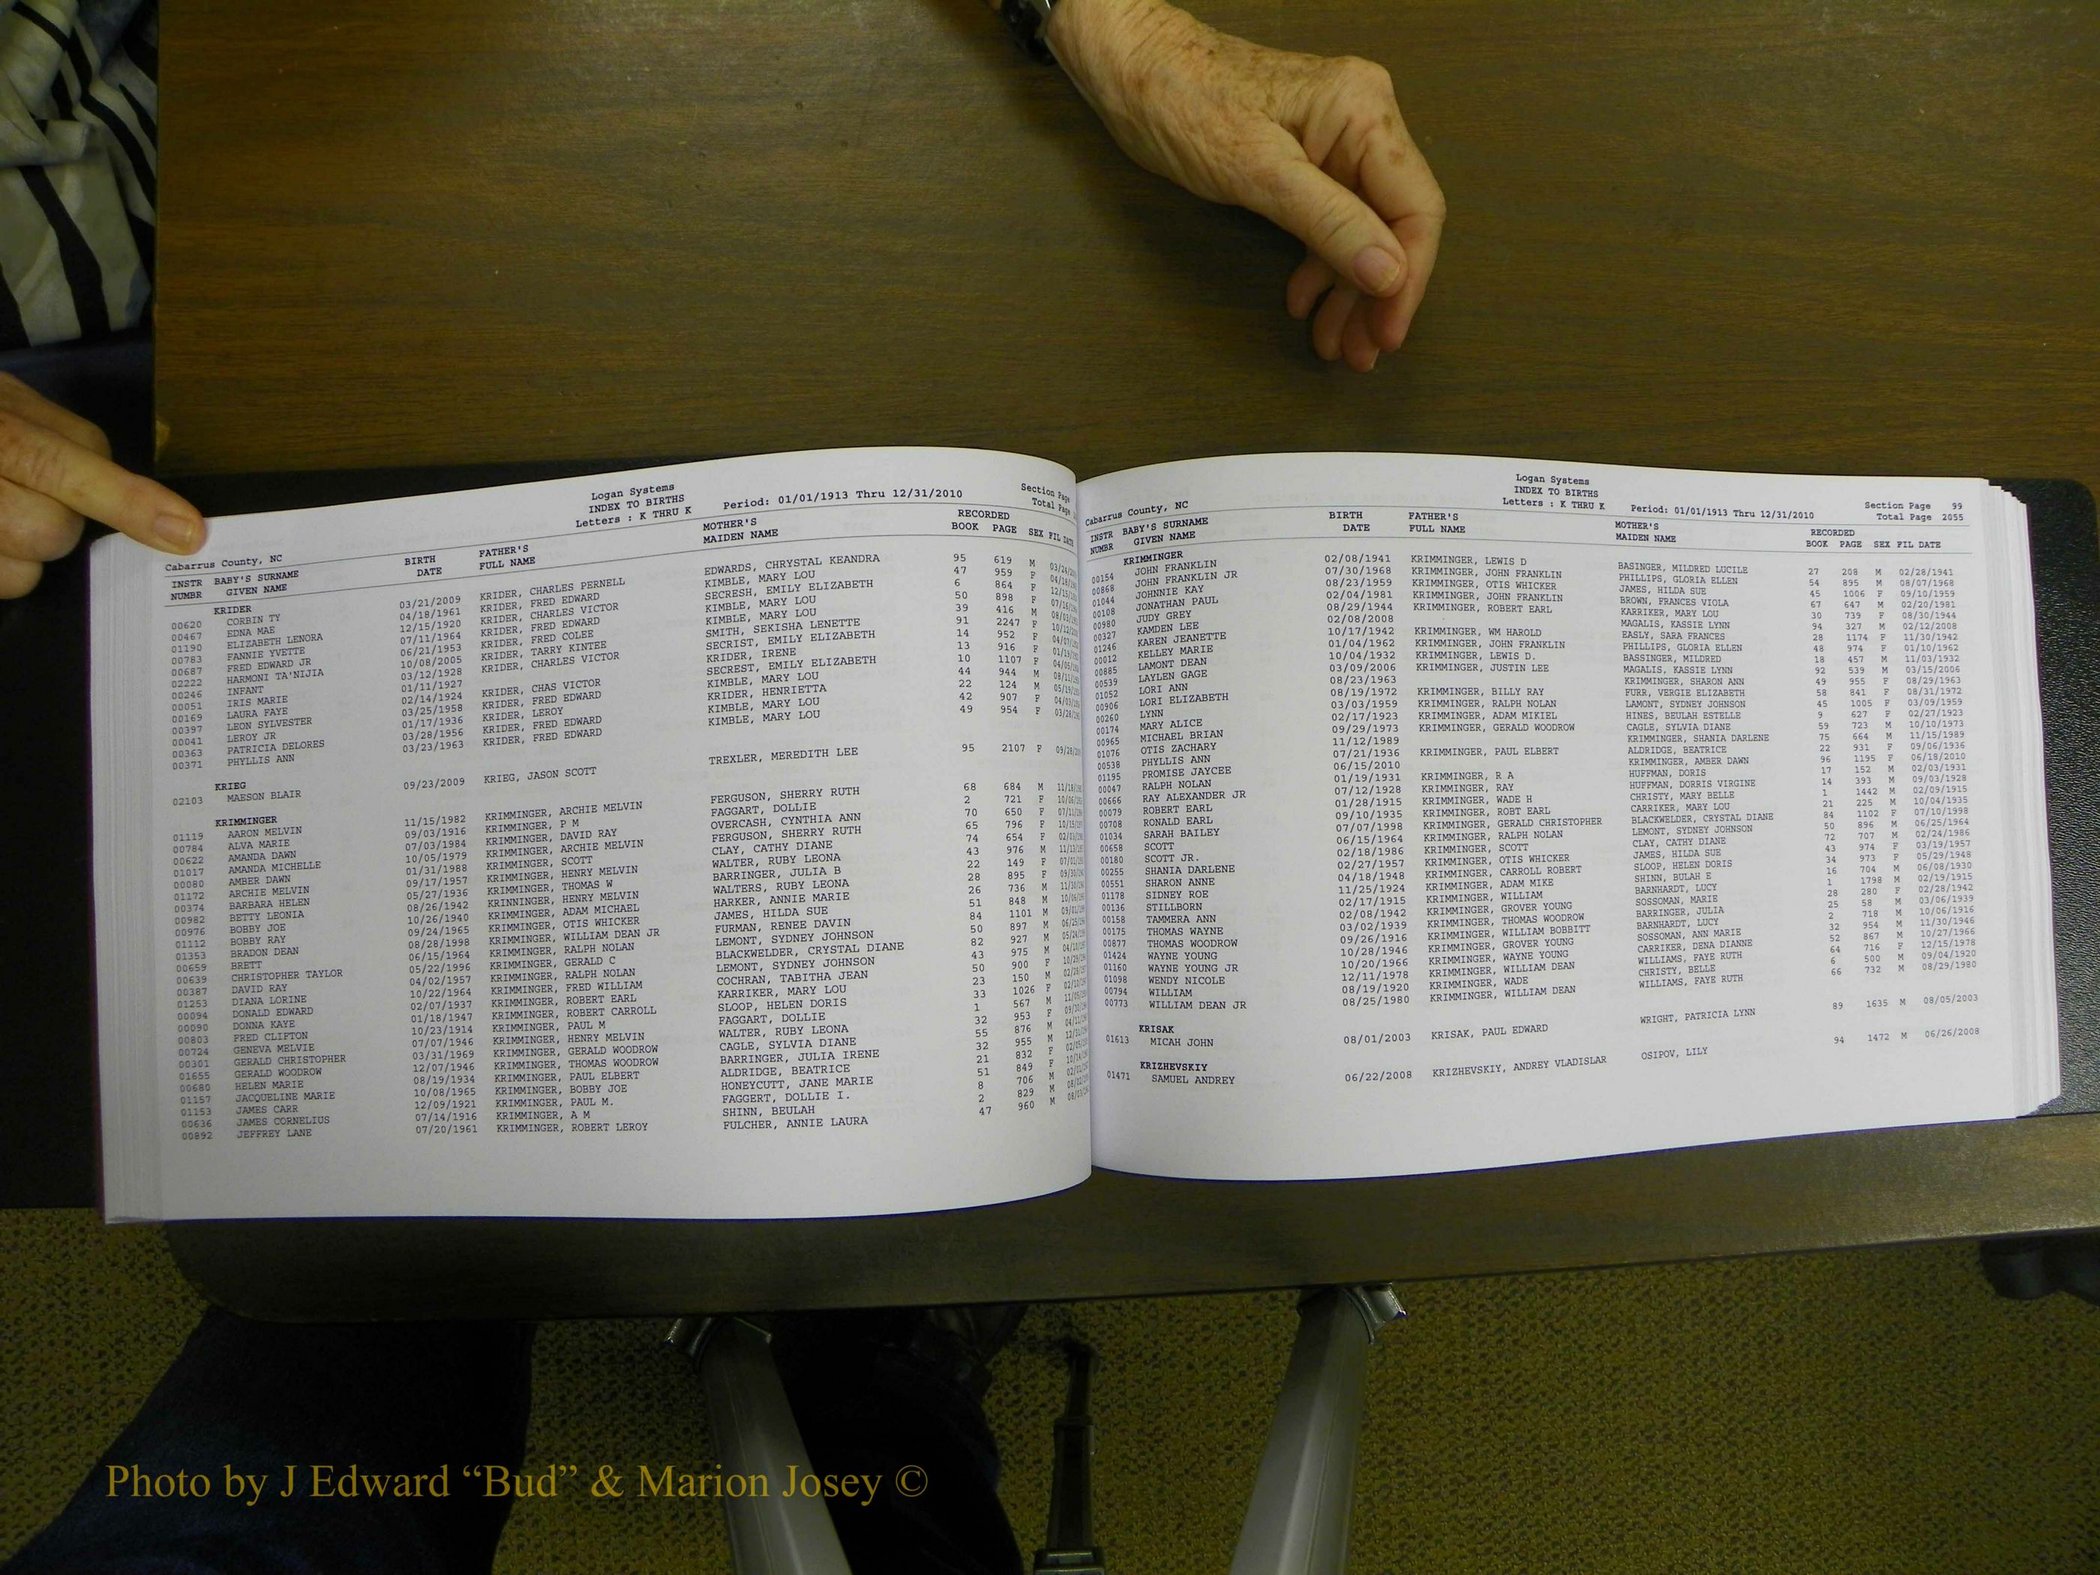 Logan Systems
INDEX TO BIRTHS
Letters : K THRU K Period: 01/01/1913 Thru 12/31/2010
Section Page
Total Page
Cabarrus County, NC
INSTR BABY'S SURNAME BIRTH FATHER'S MOTHER'S RECORDED
NUMBR GIVEN NAME DATE FULL NAME MAIDEN NAME BOOK PAGE SEX FIL DATE
KRIDER
00620 CORBIN TY 03/21/2009 KRIDER, CHARLES PERNELL EDWARDS, CRYSTAL KEANDRA 95 619 M
00467 EDNA MAE 04/18/1961 KRIDER, FRED EDWARD KIMBLE, MARY LOU 47 959 F
01190 ELIZABETH LENORA 12/15/1920 KRIDER, CHARLES VICTOR SECRESH, EMILY ELIZABETH 6 864 F
00783 FANNIE YVETTE 07/11/1964 KRIDER, FRED EDWARD KIMBLE, MARY LOU 50 898 F
00687 FRED EDWARD JR 06/21/1953 KRIDER, FRED COLEE KIMBLE, MARY LOU 39 416 M
02222 HARMONI TA'NIJIA 10/08/2005 KRIDER, TARRY KINTEE SMITH, SEKISHA LENETTE 91 2247 F
00246 INFANT 03/12/1928 KRIDER, CHARLES VICTOR SECRIST, EMILY ELIZABETH 14 952 F
00051 IRIS MARIE 01/11/1927 KRIDER, IRENE 13 916 F
00169 LAURA FAYE 02/14/1924 KRIDER, CHAS VICTOR SECREST, EMILY ELIZABETH 10 1107 F
00397 LEON SYLVESTER 03/25/1958 KRIDER, FRED EDWARD KIMBLE, MARY LOU 44 944 M
00041 LEROY JR 01/17/1936 KRIDER, LEROY KRIDER, HENRIETTA 22 124 M
00363 PATRICIA DELORES 03/28/1956 KRIDER, FRED EDWARD KIMBLE, MARY LOU 42 907 F
00371 PHYLLIS ANN 03/23/1963 KRIDER, FRED EDWARD KIMBLE, MARY LOU 49 954 F
KRIEG
02103 MAESON BLAIR 09/23/2009 KRIEG, JASON SCOTT TREXLER, MEREDITH LEE 95 2107 F
KRIMMINGER
01119 AARON MELVIN 11/15/1982 KRIMMINGER, ARCHIE MELVIN FERGUSON, SHERRY RUTH 68 684 M
00784 ALVA MARIE 09/03/1916 KRIMMINGER, P M FAGGART, DOLLIE 2 721 F
00622 AMANDA DAWN 07/03/1984 KRIMMINGER, DAVID RAY OVERCASH, CYNTHIA ANN 70 650 F
01017 AMANDA MICHELLE 10/05/1979 KRIMMINGER, ARCHIE MELVIN FERGUSON, SHERRY RUTH 65 796 F
00080 AMBER DAWN 01/31/1988 KRIMMINGER, SCOTT CLAY, CATHY DIANE 74 654 F
01172 ARCHIE MELVIN 09/17/1957 KRIMMINGER, HENRY MELVIN WALTER, RUBY LEONA 43 976 M
00374 BARBARA HELEN 05/27/1936 KRIMMINGER, THOMAS W BARRINGER, JULIA B 22 149 F
00982 BETTY LEONIA 08/26/1942 KRINNINGER, HENRY MELVIN WALTERS, RUBY LEONA 28 895 F
00976 BOBBY JOE 10/26/1940 KRIMMINGER, ADAM MICHAEL HARKER, ANNIE MARIE 26 736 M
01112 BOBBY RAY 09/24/1965 KRIMMINGER, OTIS WHICKER JAMES, HILDA SUE 51 848 M
01353 BRADON DEAN 08/28/1998 KRIMMINGER, WILLIAM DEAN JR FURMAN, RENEE DAVIN 84 1101 M
00659 BRETT 06/15/1964 KRIMMINGER, RALPH NOLAN LEMONT, SYDNEY JOHNSON 50 897 M
00639 CHRISTOPHER TAYLOR 05/22/1996 KRIMMINGER, GERALD C BLACKWELDER, CRYSTAL DIANE 82 927 M
00387 DAVID RAY 04/02/1957 KRIMMINGER, RALPH NOLAN LEMONT, SYDNEY JOHNSON 43 975 M
01253 DIANA LORINE 10/22/1964 KRIMMINGER, FRED WILLIAM COCHRAN, TABITHA JEAN 50 900 F
00094 DONALD EDWARD 02/07/1937 KRIMMINGER, ROBERT EARL KARRIKER, MARY LOU 23 150 M
00090 DONNA KAYE 01/18/1947 KRIMMINGER, ROBERT CARROLL SLOOP, HELEN DORIS 33 1026 F
00803 FRED CLIFTON 10/23/1914 KRIMMINGER, PAUL M FAGGART, DOLLIE 1 567 M
00724 GENEVA MELVIE 07/07/1946 KRIMMINGER, HENRY MELVIN WALTER, RUBY LEONA 32 953 F
00301 GERALD CHRISTOPHER 03/31/1969 KRIMMINGER, GERALD WOODROW CAGLE, SYLVIA DIANE 55 876 M
01655 GERALD WOODROW 12/07/1946 KRIMMINGER, THOMAS WOODROW BARRINGER, JULIA IRENE 32 955 M
00680 HELEN MARIE 08/19/1934 KRIMMINGER, PAUL ELBERT ALDRIDGE, BEATRICE 21 832 F
01157 JACQUELINE MARIE 10/08/1965 KRIMMINGER, BOBBY JOE HONEYCUTT, JANE MARIE 51 849 F
01153 JAMES CARR 12/09/1921 KRIMMINGER, PAUL M. FAGGERT, DOLLIE I. 8 706 M
00636 JAMES CORNELIUS 07/14/1916 KRIMMINGER, A M SHINN, BEULAH 2 829 M
00892 JEFFREY LANE 07/20/1961 KRIMMINGER, ROBERT LEROY FULCHER, ANNIE LAURA 47 960 M
Logan Systems
INDEX TO BIRTHS
Letters : K THRU K Period: 01/01/1913 Thru 12/31/2010
Section Page 99
Total Page 2055
Cabarrus County, NC
INSTR BABY'S SURNAME BIRTH FATHER'S MOTHER'S RECORDED
NUMBR GIVEN NAME DATE FULL NAME MAIDEN NAME BOOK PAGE SEX FIL DATE
KRIMMINGER
00154 JOHN FRANKLIN 02/08/1941 KRIMMINGER, LEWIS D BASINGER, MILDRED LUCILE 27 208 M 02/28/1941
00868 JOHN FRANKLIN JR 07/30/1968 KRIMMINGER, JOHN FRANKLIN PHILLIPS, GLORIA ELLEN 54 895 M 08/07/1968
01044 JOHNNIE KAY 08/23/1959 KRIMMINGER, OTIS WHICKER JAMES, HILDA SUE 45 1006 F 09/10/1959
00108 JONATHAN PAUL 02/04/1981 KRIMMINGER, JOHN FRANKLIN BROWN, FRANCES VIOLA 67 647 M 02/20/1981
00980 JUDY GREY 08/29/1944 KRIMMINGER, ROBERT EARL KARRIKER, MARY LOU 30 739 F 08/30/1944
00327 KAMDEN LEE 02/08/2008 MAGALIS, KASSIE LYNN 94 327 M 02/12/2008
01246 KAREN JEANETTE 10/17/1942 KRIMMINGER, WM HAROLD EASLY, SARA FRANCES 28 1174 F 11/30/1942
00012 KELLEY MARIE 01/04/1962 KRIMMINGER, JOHN FRANKLIN PHILLIPS, GLORIA ELLEN 48 974 F 01/10/1962
00885 LAMONT DEAN 10/04/1932 KRIMMINGER, LEWIS D. BASSINGER, MILDRED 18 457 M 11/03/1932
00539 LAYLEN GAGE 03/09/2006 KRIMMINGER, JUSTIN LEE MAGALIS, KASSIE LYNN 92 539 M 03/15/2006
01052 LORI ANN 08/23/1963 KRIMMINGER, SHARON ANN 49 955 F 08/29/1963
00906 LORI ELIZABETH 08/19/1972 KRIMMINGER, BILLY RAY FURR, VERGIE ELIZABETH 58 841 F 08/31/1972
00260 LYNN 03/03/1959 KRIMMINGER, RALPH NOLAN LAMONT, SYDNEY JOHNSON 45 1005 F 03/09/1959
00174 MARY ALICE 02/17/1923 KRIMMINGER, ADAM MIKIEL HINES, BEULAH ESTELLE 9 627 F 02/27/1923
00965 MICHAEL BRIAN 09/29/1973 KRIMMINGER, GERALD WOODROW CAGLE, SYLVIA DIANE 59 723 M 10/10/1973
01076 OTIS ZACHARY 11/12/1989 KRIMMINGER, SHANIA DARLENE 75 664 M 11/15/1989
00538 PHYLLIS ANN 07/21/1936 KRIMMINGER, PAUL ELBERT ALDRIDGE, BEATRICE 22 931 F 09/06/1936
01195 PROMISE JAYCEE 06/15/2010 KRIMMINGER, AMBER DAWN 96 1195 F 06/18/2010
00047 RALPH NOLAN 01/19/1931 KRIMMINGER, R A HUFFMAN, DORIS 17 152 M 02/03/1931
00666 RAY ALEXANDER JR 07/12/1928 KRIMMINGER, RAY HUFFMAN, DORRIS VIRGINE 14 393 M 09/03/1928
00079 ROBERT EARL 01/28/1915 KRIMMINGER, WADE H CHRISTY, MARY BELLE 1 1442 M 02/09/1915
00708 RONALD EARL 09/10/1935 KRIMMINGER, ROBT EARL CARRIKER, MARY LOU 21 225 M 10/04/1935
01034 SARAH BAILEY 07/07/1998 KRIMMINGER, GERALD CHRISTOPHER BLACKWELDER, CRYSTAL DIANE 84 1102 F 07/10/1998
00658 SCOTT 06/15/1964 KRIMMINGER, RALPH NOLAN LEMONT, SYDNEY JOHNSON 50 896 M 06/25/1964
00180 SCOTT JR. 02/18/1986 KRIMMINGER, SCOTT CLAY, CATHY DIANE 72 707 M 02/24/1986
00255 SHANIA DARLENE 02/27/1957 KRIMMINGER, OTIS WHICKER JAMES, HILDA SUE 43 974 F 03/19/1957
00551 SHARON ANNE 04/18/1948 KRIMMINGER, CARROLL ROBERT SLOOP, HELEN DORIS 34 973 F 05/29/1948
01178 SIDNEY ROE 11/25/1924 KRIMMINGER, ADAM MIKE SHINN, BULAH E 16 704 M 06/08/1930
00136 STILLBORN 02/17/1915 KRIMMINGER, WILLIAM BARNHARDT, LUCY 1 1798 M 02/19/1915
00158 TAMMERA ANN 02/08/1942 KRIMMINGER, GROVER YOUNG SOSSOMAN, MARIE 28 280 F 02/28/1942
00175 THOMAS WAYNE 03/02/1939 KRIMMINGER, THOMAS WOODROW BARRINGER, JULIA 25 58 M 03/06/1939
00877 THOMAS WOODROW 09/26/1916 KRIMMINGER, WILLIAM BOBBITT BARNHARDT, LUCY 2 718 M 10/06/1916
01424 WAYNE YOUNG 10/28/1946 KRIMMINGER, GROVER YOUNG SOSSOMAN, ANN MARIE 32 954 M 11/30/1946
01160 WAYNE YOUNG JR 10/20/1966 KRIMMINGER, WAYNE YOUNG CARRIKER, DENA DIANNE 52 867 M 10/27/1966
01098 WENDY NICOLE 12/11/1978 KRIMMINGER, WILLIAM DEAN WILLIAMS, FAYE RUTH 64 716 F 12/15/1978
00794 WILLIAM 08/19/1920 KRIMMINGER, WADE CHRISTY, BELLE 6 500 M 09/04/1920
00773 WILLIAM DEAN JR 08/25/1980 KRIMMINGER, WILLIAM DEAN WILLIAMS, FAYE RUTH 66 732 M 08/29/1980
KRISAK
01613 MICAH JOHN 08/01/2003 KRISAK, PAUL EDWARD WRIGHT, PATRICIA LYNN 89 1635 M 08/05/2003
KRIZHEVSKIY
01471 SAMUEL ANDREY 06/22/2008 KRIZHEVSKIY, ANDREY VLADISLAR OSIPOV, LILY 94 1472 M 06/26/2008
Photo by J Edward “Bud” & Marion Josey ©